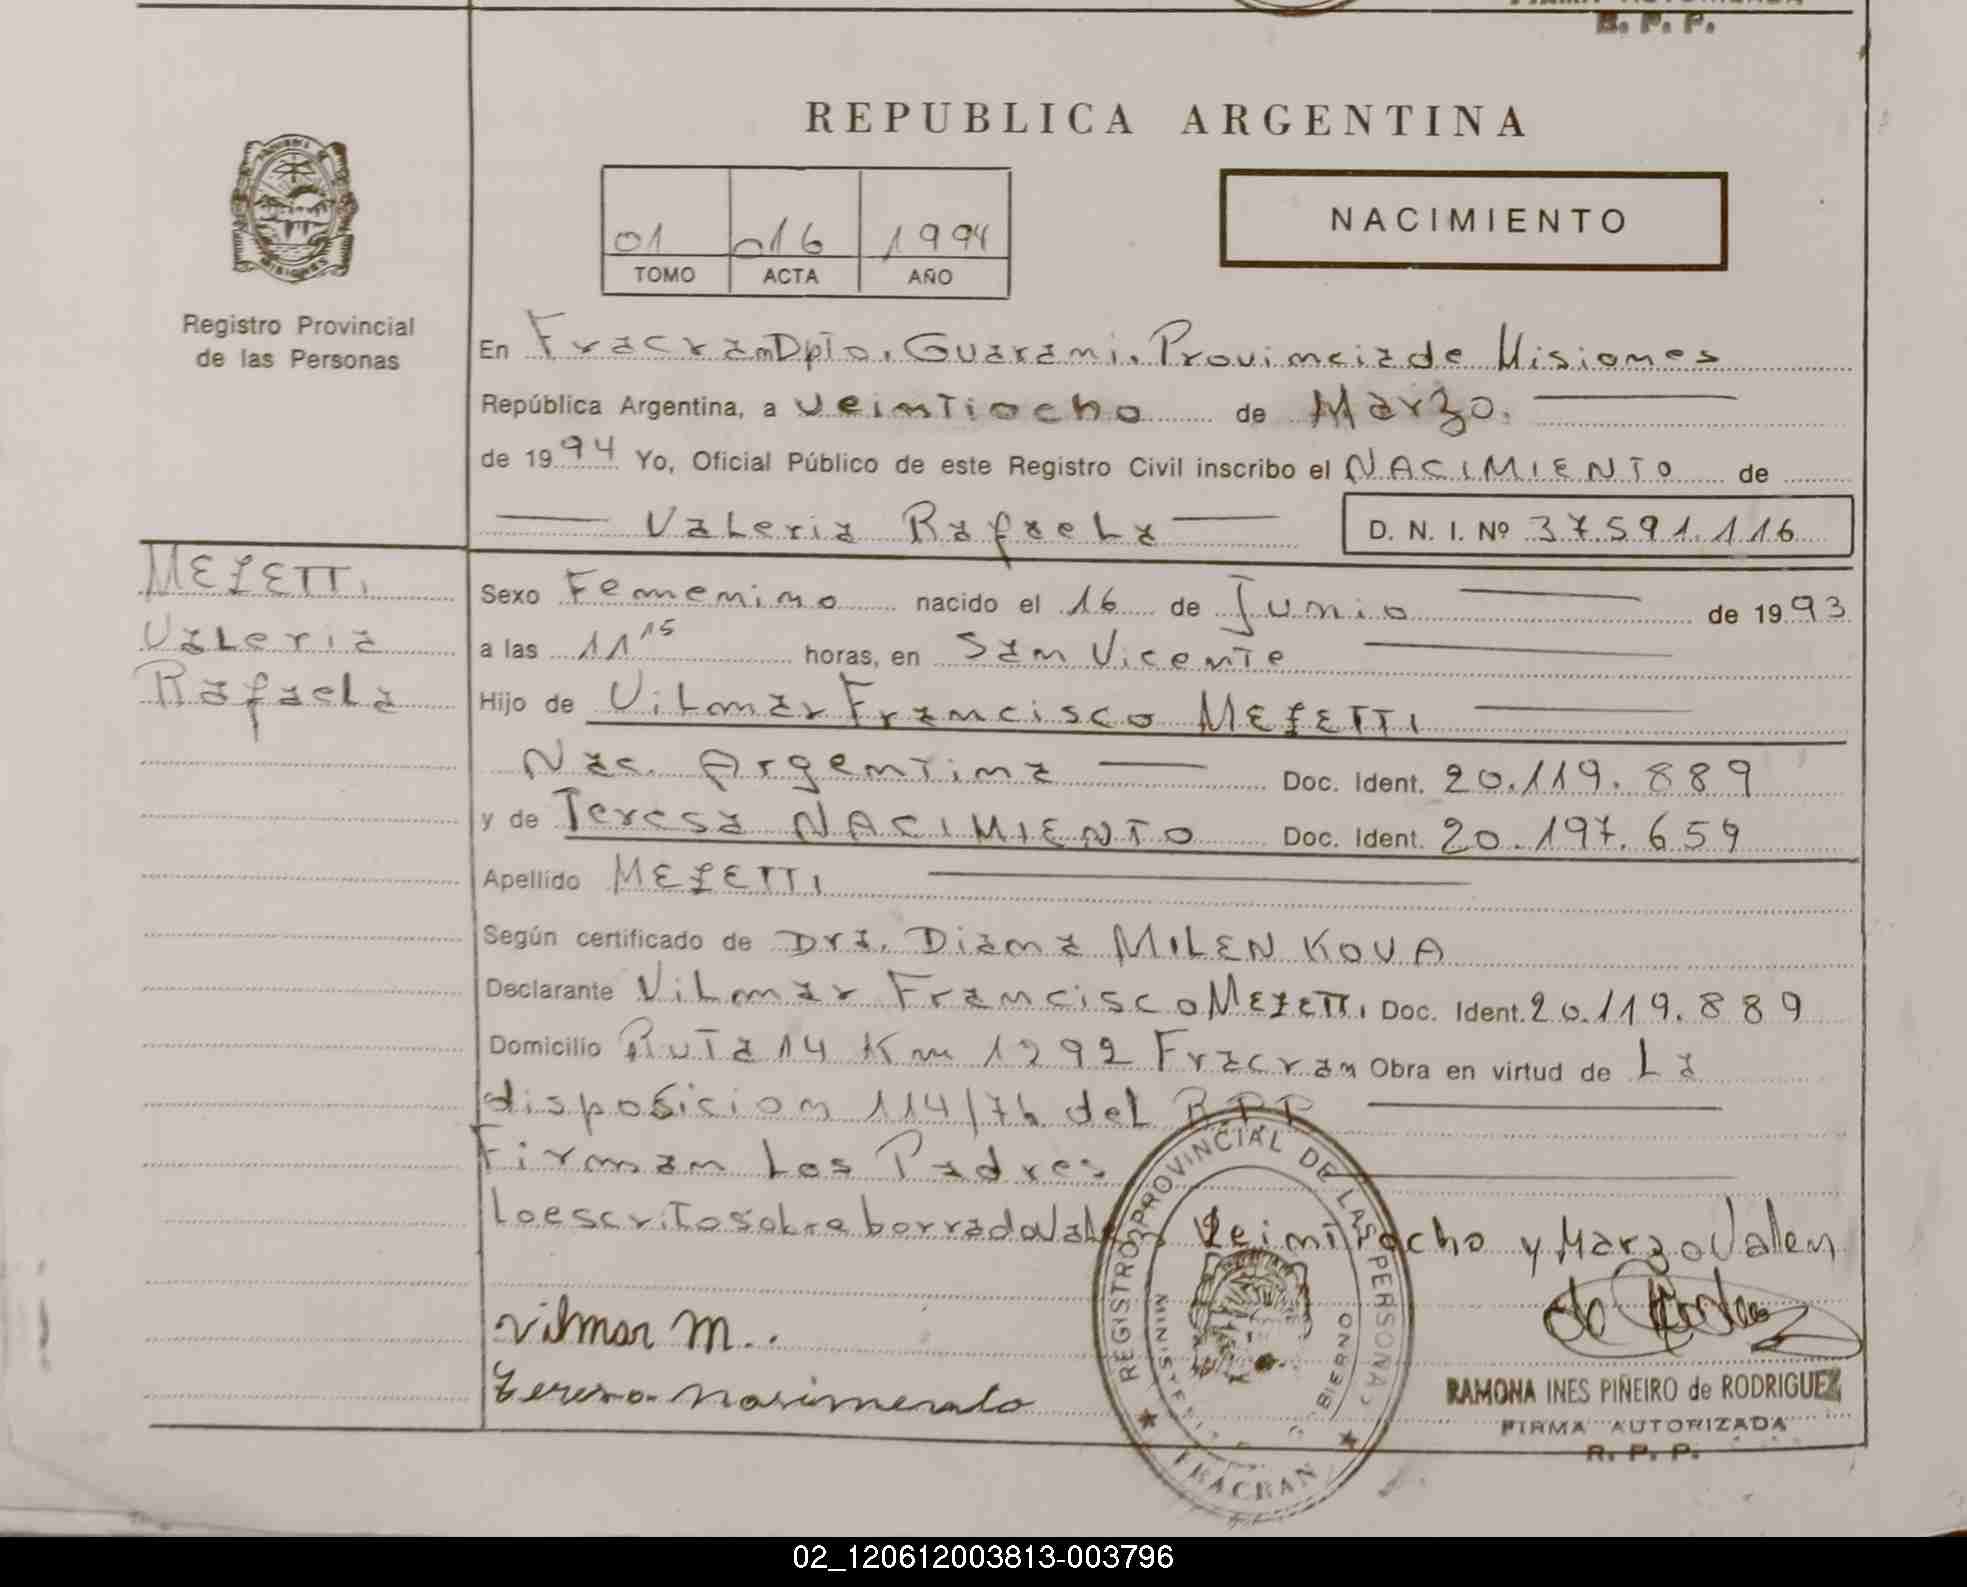 B. P. P.
REPUBLICA ARGENTINA
01 016 1994
TOMO ACTA AÑO
NACIMIENTO
MISIONES
Registro Provincial
de las Personas
En Fracran Dpto. Guarani. Provincia de Misiones
República Argentina, a veintiocho de Marzo.
de 1994 Yo, Oficial Público de este Registro Civil inscribo el NACIMIENTO de
Valeria Rafaela D. N. I. Nº 37.591.116
MEZETTI
Valeria
Rafaela
Sexo Femenino nacido el 16 de Junio de 1993
a las 11 15 horas, en San Vicente
Hijo de Vilmar Francisco MEZETTI
Nac. Argentina Doc. Ident. 20.119.889
y de Teresa NACIMIENTO Doc. Ident. 20.197.659
Apellido MEZETTI
Según certificado de Dra. Diana MILENKOVA
Declarante Vilmar Francisco MEZETTI. Doc. Ident. 20.119.889
Domicilio Ruta 14 Km 1292 Fracran Obra en virtud de La
disposicion 114/76 del RPP
Firman Los Padres
Lo escrito sobre borrado Vale Veintiocho y Marzo Valen
REGISTRO PROVINCIAL DE LAS PERSONAS
FRACRAN
Vilmar M..
Teresa Nacimiento
RAMONA INES PIÑEIRO de RODRIGUEZ
FIRMA AUTORIZADA
R. P. P.
02_120612003813-003796